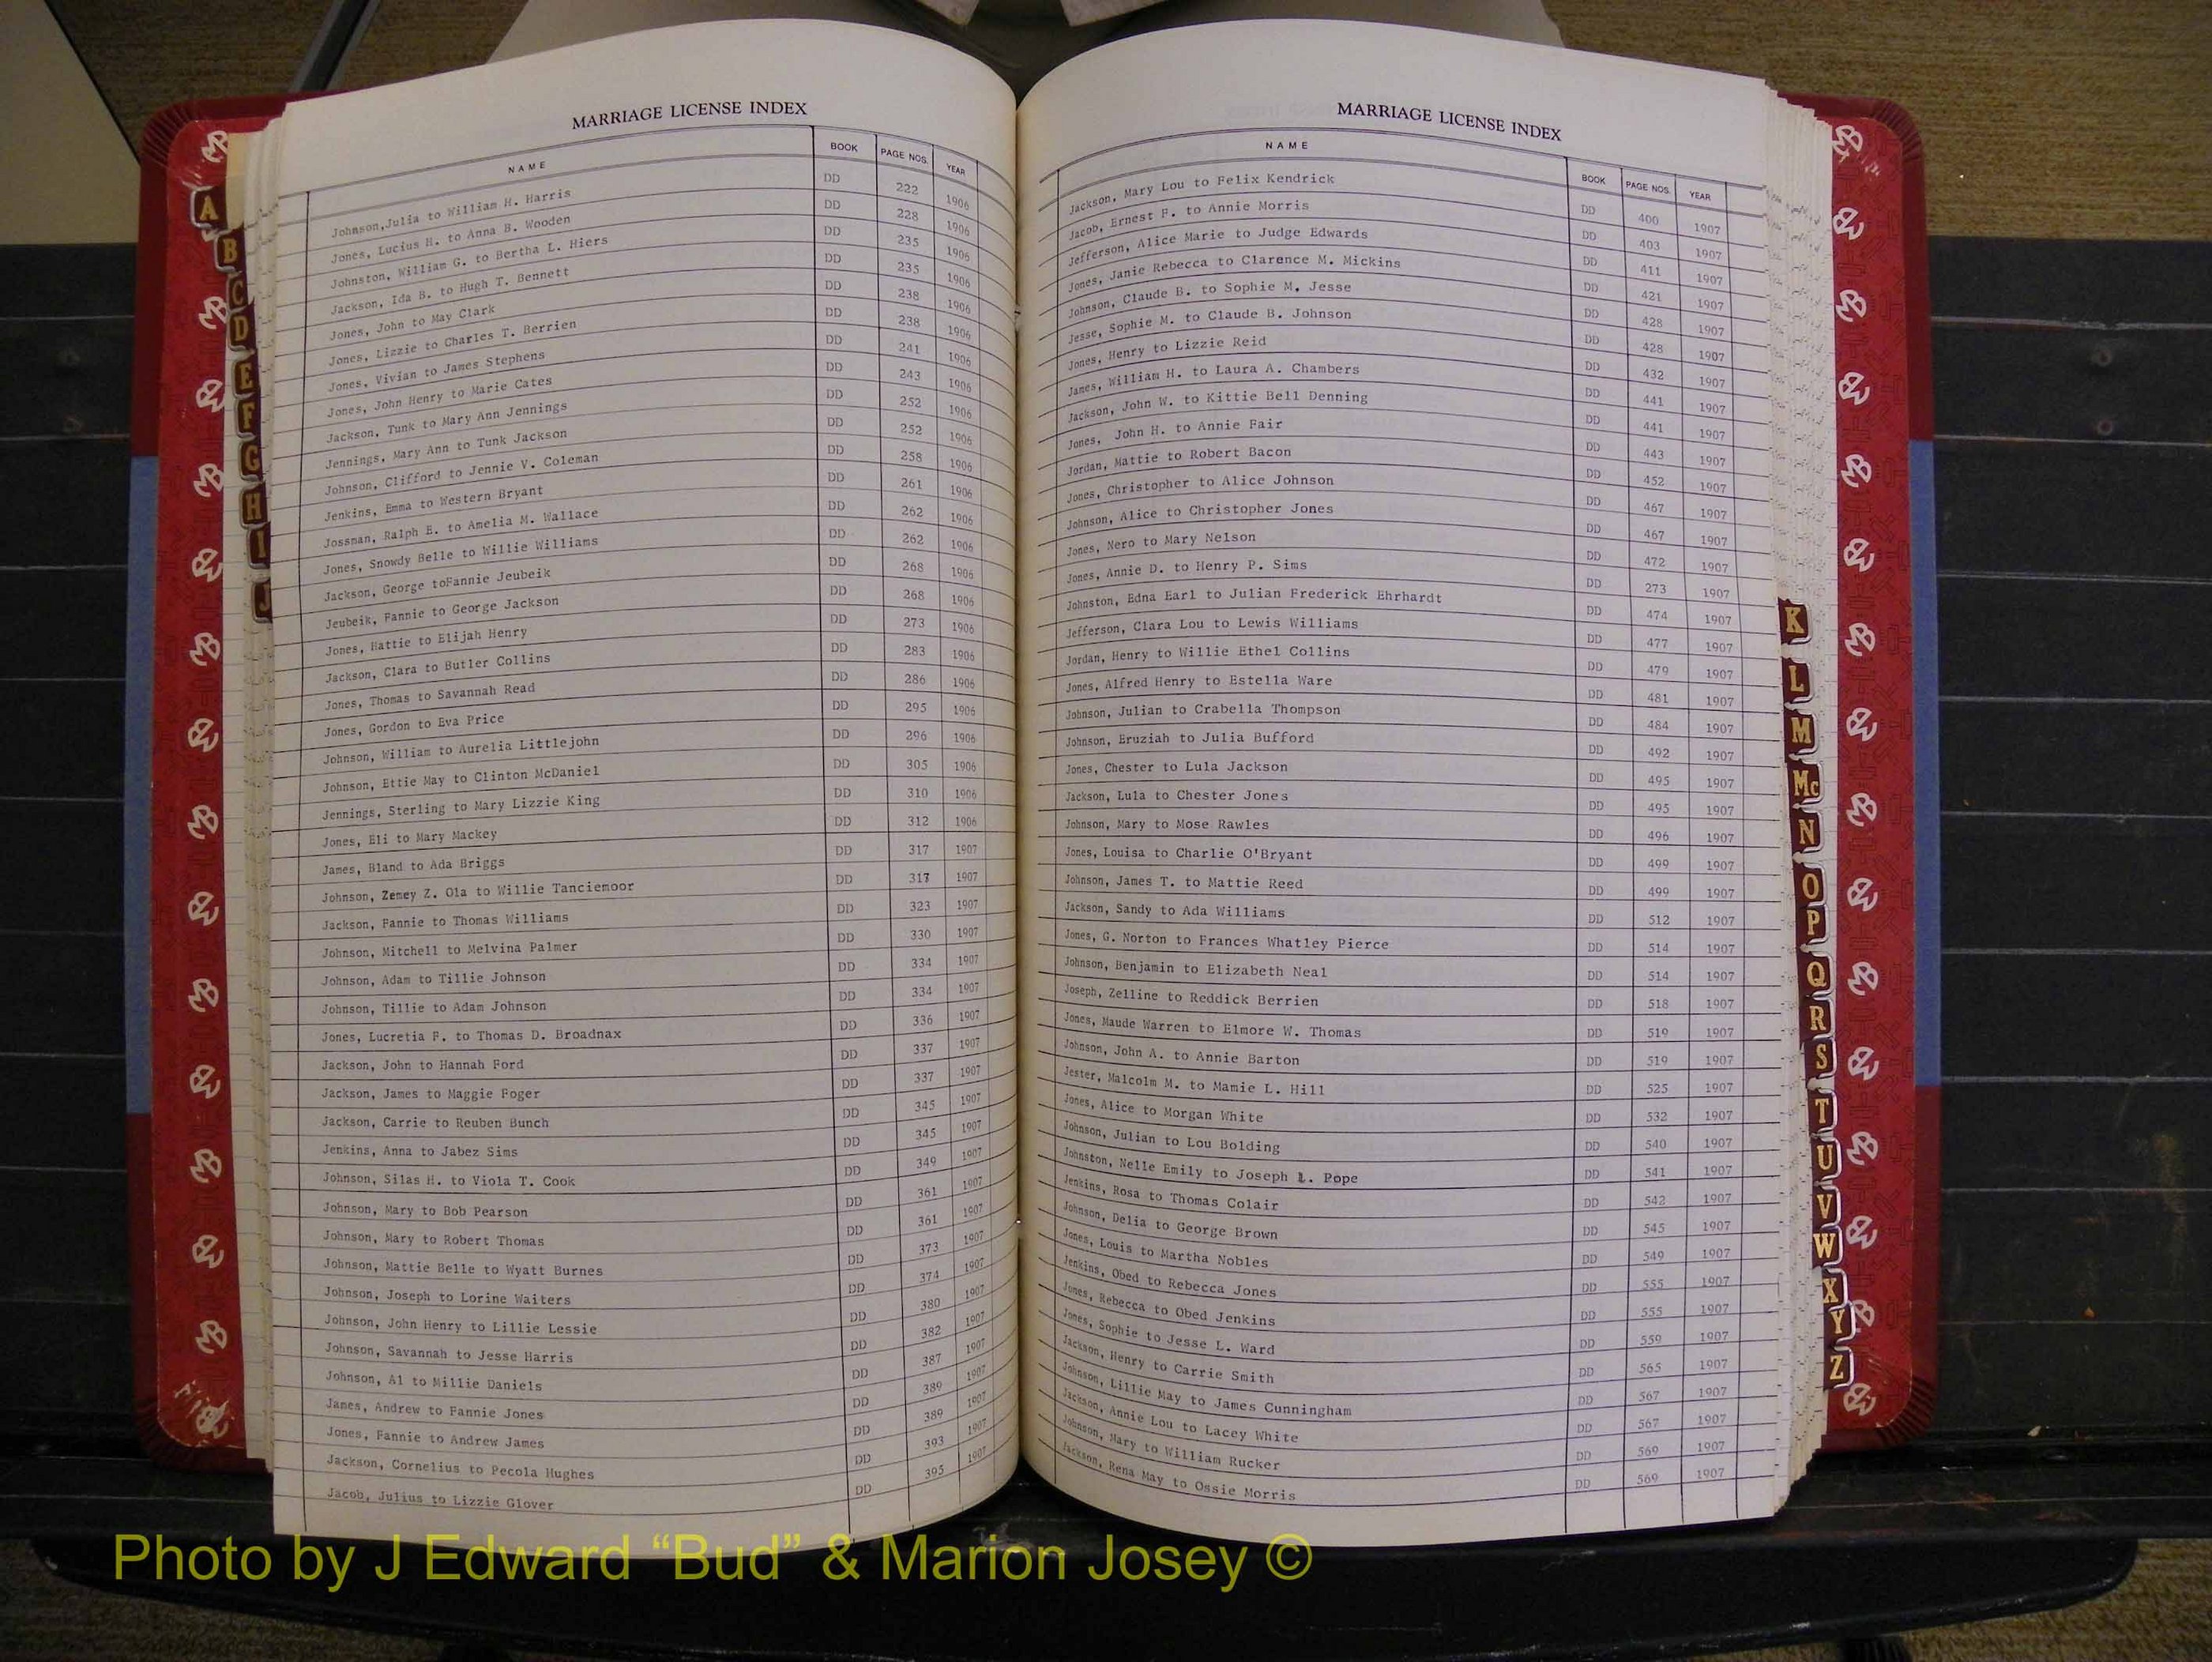 MARRIAGE LICENSE INDEX
NAME BOOK PAGE NOS. YEAR
Johnson,Julia to William H. Harris DD 222 1906
Jones, Lucius H. to Anna B. Wooden DD 228 1906
Johnston, William G. to Bertha L. Hiers DD 235 1906
Jackson, Ida B. to Hugh T. Bennett DD 235 1906
Jones, John to May Clark DD 238 1906
Jones, Lizzie to Charles T. Berrien DD 238 1906
Jones, Vivian to James Stephens DD 241 1906
Jones, John Henry to Marie Cates DD 243 1906
Jackson, Tunk to Mary Ann Jennings DD 252 1906
Jennings, Mary Ann to Tunk Jackson DD 252 1906
Johnson, Clifford to Jennie V. Coleman DD 258 1906
Jenkins, Emma to Western Bryant DD 261 1906
Jossman, Ralph E. to Amelia M. Wallace DD 262 1906
Jones, Snowdy Belle to Willie Williams DD 262 1906
Jackson, George toFannie Jeubeik DD 268 1906
Jeubeik, Fannie to George Jackson DD 268 1906
Jones, Hattie to Elijah Henry DD 273 1906
Jackson, Clara to Butler Collins DD 283 1906
Jones, Thomas to Savannah Read DD 286 1906
Jones, Gordon to Eva Price DD 295 1906
Johnson, William to Aurelia Littlejohn DD 296 1906
Johnson, Ettie May to Clinton McDaniel DD 305 1906
Jennings, Sterling to Mary Lizzie King DD 310 1906
Jones, Eli to Mary Mackey DD 312 1906
James, Bland to Ada Briggs DD 317 1907
Johnson, Zemey Z. Ola to Willie Tanciemoor DD 317 1907
Jackson, Fannie to Thomas Williams DD 323 1907
Johnson, Mitchell to Melvina Palmer DD 330 1907
Johnson, Adam to Tillie Johnson DD 334 1907
Johnson, Tillie to Adam Johnson DD 334 1907
Jones, Lucretia F. to Thomas D. Broadnax DD 336 1907
Jackson, John to Hannah Ford DD 337 1907
Jackson, James to Maggie Foger DD 337 1907
Jackson, Carrie to Reuben Bunch DD 345 1907
Jenkins, Anna to Jabez Sims DD 345 1907
Johnson, Silas H. to Viola T. Cook DD 349 1907
Johnson, Mary to Bob Pearson DD 361 1907
Johnson, Mary to Robert Thomas DD 361 1907
Johnson, Mattie Belle to Wyatt Burnes DD 373 1907
Johnson, Joseph to Lorine Waiters DD 374 1907
Johnson, John Henry to Lillie Lessie DD 380 1907
Johnson, Savannah to Jesse Harris DD 382 1907
Johnson, Al to Millie Daniels DD 387 1907
James, Andrew to Fannie Jones DD 389 1907
Jones, Fannie to Andrew James DD 389 1907
Jackson, Cornelius to Pecola Hughes DD 393 1907
Jacob, Julius to Lizzie Glover DD 395 1907
MARRIAGE LICENSE INDEX
NAME BOOK PAGE NOS. YEAR
Jackson, Mary Lou to Felix Kendrick DD 400 1907
Jacob, Ernest F. to Annie Morris DD 403 1907
Jefferson, Alice Marie to Judge Edwards DD 411 1907
Jones, Janie Rebecca to Clarence M. Mickins DD 421 1907
Johnson, Claude B. to Sophie M. Jesse DD 428 1907
Jesse, Sophie M. to Claude B. Johnson DD 428 1907
Jones, Henry to Lizzie Reid DD 432 1907
James, William H. to Laura A. Chambers DD 441 1907
Jackson, John W. to Kittie Bell Denning DD 441 1907
Jones, John H. to Annie Fair DD 443 1907
Jordan, Mattie to Robert Bacon DD 452 1907
Jones, Christopher to Alice Johnson DD 467 1907
Johnson, Alice to Christopher Jones DD 467 1907
Jones, Nero to Mary Nelson DD 472 1907
Jones, Annie D. to Henry P. Sims DD 273 1907
Johnston, Edna Earl to Julian Frederick Ehrhardt DD 474 1907
Jefferson, Clara Lou to Lewis Williams DD 477 1907
Jordan, Henry to Willie Ethel Collins DD 479 1907
Jones, Alfred Henry to Estella Ware DD 481 1907
Johnson, Julian to Crabella Thompson DD 484 1907
Johnson, Eruziah to Julia Bufford DD 492 1907
Jones, Chester to Lula Jackson DD 495 1907
Jackson, Lula to Chester Jones DD 495 1907
Johnson, Mary to Mose Rawles DD 496 1907
Jones, Louisa to Charlie O'Bryant DD 499 1907
Johnson, James T. to Mattie Reed DD 499 1907
Jackson, Sandy to Ada Williams DD 512 1907
Jones, G. Norton to Frances Whatley Pierce DD 514 1907
Johnson, Benjamin to Elizabeth Neal DD 514 1907
Joseph, Zelline to Reddick Berrien DD 518 1907
Jones, Maude Warren to Elmore W. Thomas DD 519 1907
Johnson, John A. to Annie Barton DD 519 1907
Jester, Malcolm M. to Mamie L. Hill DD 525 1907
Jones, Alice to Morgan White DD 532 1907
Johnson, Julian to Lou Bolding DD 540 1907
Johnston, Nelle Emily to Joseph L. Pope DD 541 1907
Jenkins, Rosa to Thomas Colair DD 542 1907
Johnson, Delia to George Brown DD 545 1907
Jones, Louis to Martha Nobles DD 549 1907
Jenkins, Obed to Rebecca Jones DD 555 1907
Jones, Rebecca to Obed Jenkins DD 555 1907
Jones, Sophie to Jesse L. Ward DD 559 1907
Jackson, Henry to Carrie Smith DD 565 1907
Johnson, Lillie May to James Cunningham DD 567 1907
Jackson, Annie Lou to Lacey White DD 567 1907
Johnson, Mary to William Rucker DD 569 1907
Jackson, Rena May to Ossie Morris DD 569 1907
A
B
C
D
E
F
G
H
I
J
K
L
M
Mc
N
O
P
Q
R
S
T
U
V
W
X
Y
Z
Photo by J Edward “Bud” & Marion Josey ©